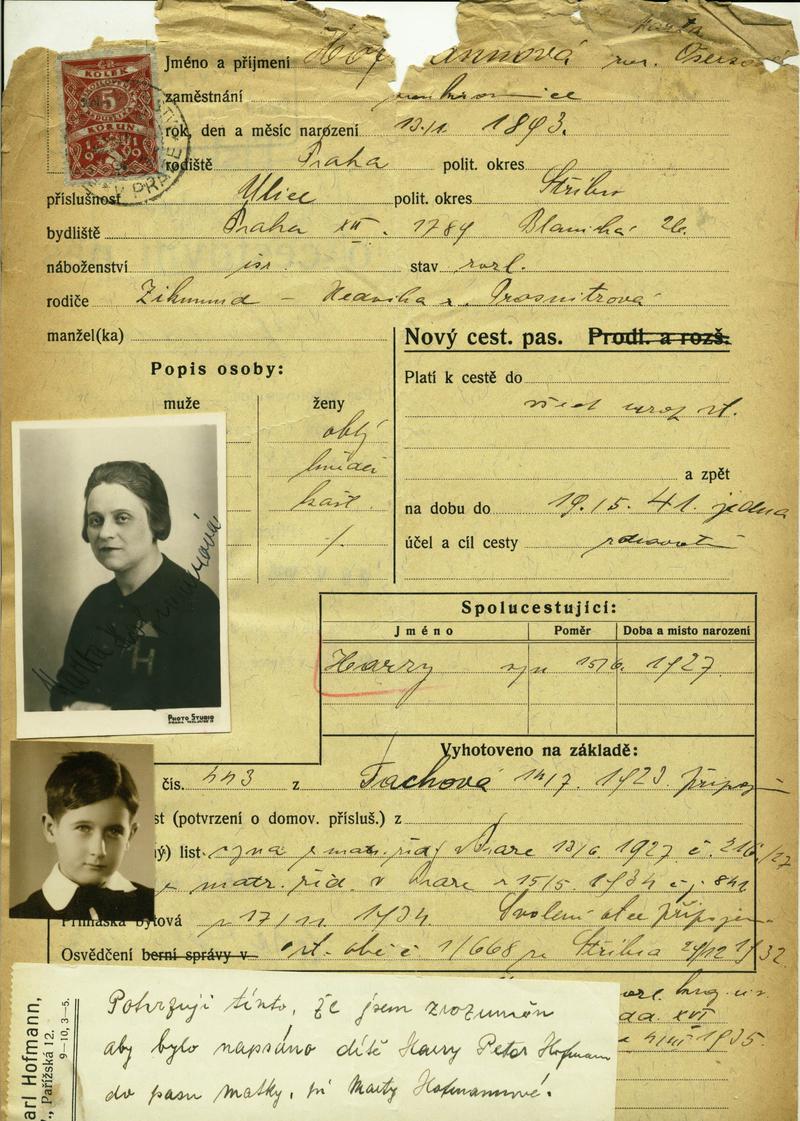 Marta
Jméno a příjmení Hof annová roz. Osersová
zaměstnání
rok, den a měsíc narození 13./1. 1893.
rodiště Praha polit. okres
příslušnost Ulice polit. okres Stříbro
bydliště Praha XII. 1789 Blanická 26.
náboženství isr. stav rozl.
rodiče Zikmund – Hedvika r. Prosnitzová
manžel(ka)
Popis osoby:
muže ženy
oblý
hnědé
kašt.
Nový cest. pas. Prodl. a rozš.
Platí k cestě do
všech evrop. st.
a zpět
na dobu do 19./5. 41. jedna
účel a cíl cesty zdravotní
Spolucestující:
Jméno Poměr Doba a místo narození
Harry syn 15/6. 1927.
Vyhotoveno na základě:
čís. 443 z Tachova 14/7. 1923.
st (potvrzení o domov. přísluš.) z
ý) list 13/6. 1927 č. 216/27
matr. žid. v 15/5. 1934 čj. 841
Přihláška bytová 17/11. 1934. Svolení otce připojeno
Osvědčení berní správy v č 1/668 Stříbra 24/12 1932
XVI
1935.
KOLEK
5
KORUN
1919
PRAZE
Marta Hofmannová
H
PHOTO STUDIO
arl Hofmann,
Pařížská 12.
9–10, 3–5.
Potvrzuji tímto, že jsem srozuměn
aby bylo napsáno dítě Harry Peter Hofmann
do pasu matky, pí Marty Hofmannové.